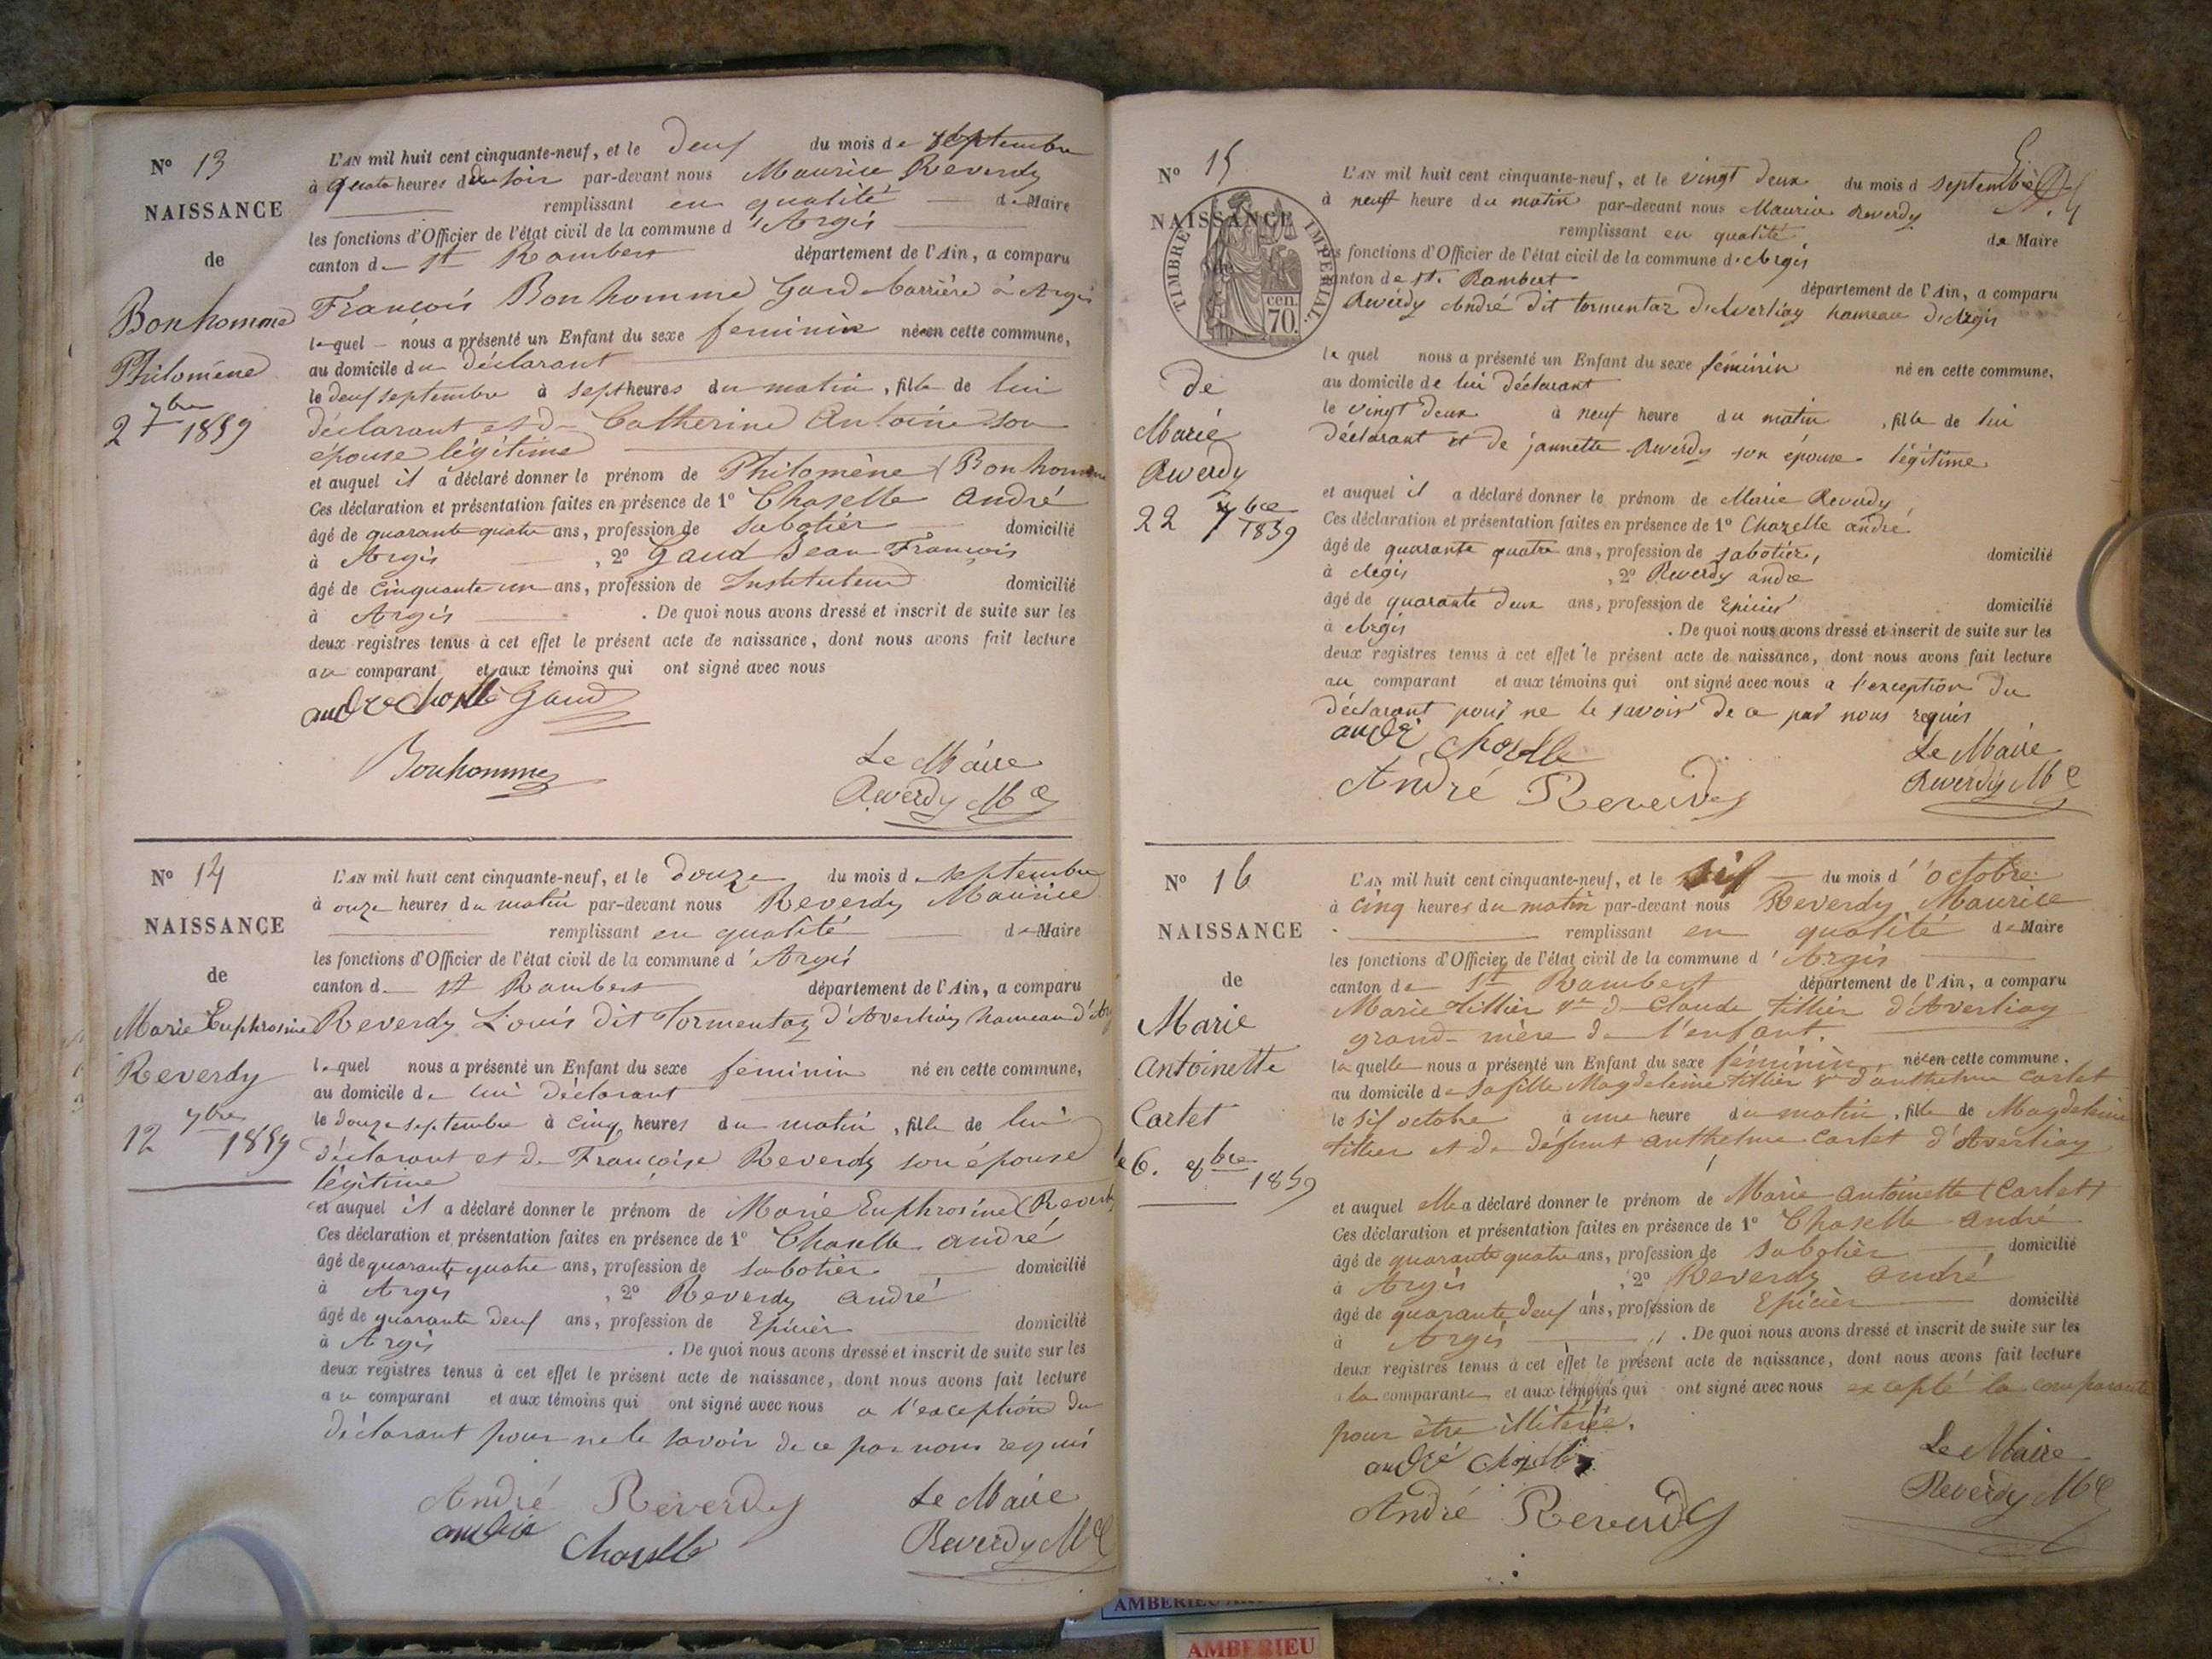 N° 13
NAISSANCE
de
Bonhomme
Philomène
2 7bre 1859
L'AN mil huit cent cinquante-neuf, et le deux du mois de septembre
à quatre heures du soir par-devant nous Maurice Reverdy
remplissant en qualité de Maire
les fonctions d'Officier de l'état civil de la commune d'Argis
canton de St Rambert département de l'Ain, a comparu
François Bonhomme Garde barrière à Argis
lequel nous a présenté un Enfant du sexe feminin né en cette commune,
au domicile du déclarant
le deux septembre à sept heures du matin, fille de lui
déclarant et de Catherine Antoine son
épouse légitime
et auquel il a déclaré donner le prénom de Philomène (Bonhomme
Ces déclaration et présentation faites en présence de 1° Chaselle andré
âgé de quarante quatre ans, profession de sabotier domicilié
à Argis, 2° Gaud Jean François
âgé de cinquante un ans, profession de Instituteur domicilié
à Argis. De quoi nous avons dressé et inscrit de suite sur les
deux registres tenus à cet effet le présent acte de naissance, dont nous avons fait lecture
au comparant et aux témoins qui ont signé avec nous
andré Choselle Gaud
Bonhomme
Le Maire
Reverdy Mce
N° 14
NAISSANCE
de
Marie Euphrosine
Reverdy
12 7bre 1859
L'AN mil huit cent cinquante-neuf, et le douze du mois de septembre
à onze heures du matin par-devant nous Reverdy Maurice
remplissant en qualité de Maire
les fonctions d'Officier de l'état civil de la commune d'Argis
canton de St Rambert département de l'Ain, a comparu
Reverdy Louis dit Tormentaz d'Averliaz hameau d'Ar
lequel nous a présenté un Enfant du sexe feminin né en cette commune,
au domicile de lui déclarant
le douze septembre à cinq heures du matin, fille de lui
déclarant et de Françoise Reverdy son épouse
légitime
et auquel il a déclaré donner le prénom de Marie Euphrosine (Reverdy
Ces déclaration et présentation faites en présence de 1° Chaselle andré
âgé de quarante quatre ans, profession de sabotier domicilié
à Argis, 2° Reverdy andré
âgé de quarante deux ans, profession de Epicier domicilié
à Argis. De quoi nous avons dressé et inscrit de suite sur les
deux registres tenus à cet effet le présent acte de naissance, dont nous avons fait lecture
au comparant et aux témoins qui ont signé avec nous a l'exception du
déclarant pour ne le savoir de ce par nous requis
André Reverdy
andré Choselle
Le Maire
Reverdy Mce
N° 15
NAISSANCE
TIMBRE IMPERIAL
cen. 70.
de
Marie
Reverdy
22 7bre 1859
L'AN mil huit cent cinquante-neuf, et le vingt deux du mois d septembre
à neuf heure du matin par-devant nous Maurice Reverdy
remplissant en qualité de Maire
les fonctions d'Officier de l'état civil de la commune d'Argis
canton de st. Rambert département de l'Ain, a comparu
Reverdy André dit tormentaz d'Averliaz hameau d'Argis
lequel nous a présenté un Enfant du sexe féminin né en cette commune,
au domicile de lui déclarant
le vingt deux à neuf heure du matin, fille de lui
déclarant et de jannette Reverdy son épouse légitime
et auquel il a déclaré donner le prénom de Marie Reverdy
Ces déclaration et présentation faites en présence de 1° Chazelle andré
âgé de quarante quatre ans, profession de sabotier, domicilié
à Argis, 2° Reverdy andre
âgé de quarante deux ans, profession de Epicier domicilié
à Argis. De quoi nous avons dressé et inscrit de suite sur les
deux registres tenus à cet effet le présent acte de naissance, dont nous avons fait lecture
au comparant et aux témoins qui ont signé avec nous a l'exception du
déclarant pour ne le savoir de ce par nous requis
andré Choselle
André Reverdy
Le Maire
Reverdy Mce
N° 16
NAISSANCE
de
Marie
Antoinette
Carlet
le 6. 8bre 1859
L'AN mil huit cent cinquante-neuf, et le six du mois d'octobre
à cinq heures du matin par-devant nous Reverdy Maurice
remplissant en qualité de Maire
les fonctions d'Officier de l'état civil de la commune d'Argis
canton de St Rambert département de l'Ain, a comparu
Marie Tillier ve de Claude Tillier d'Averliaz
grand-mère de l'enfant.
laquelle nous a présenté un Enfant du sexe féminin né en cette commune,
au domicile de sa fille Magdeleine Tillier ve d'anthelme Carlet
le six octobre à une heure du matin, fille de Magdeleine
Tillier et de défunt anthelme Carlet d'Averliaz
et auquel elle a déclaré donner le prénom de Marie Antoinette (Carlet)
Ces déclaration et présentation faites en présence de 1° Chaselle André
âgé de quarante quatre ans, profession de sabotier domicilié
à Argis, 2° Reverdy andré
âgé de quarante deux ans, profession de Epicier domicilié
à Argis. De quoi nous avons dressé et inscrit de suite sur les
deux registres tenus à cet effet le présent acte de naissance, dont nous avons fait lecture
à la comparante et aux témoins qui ont signé avec nous excepté la comparante
pour être illiterée.
andré Choselle
André Reverdy
Le Maire
Reverdy Mce
AMBERIEU
AMBERIEU